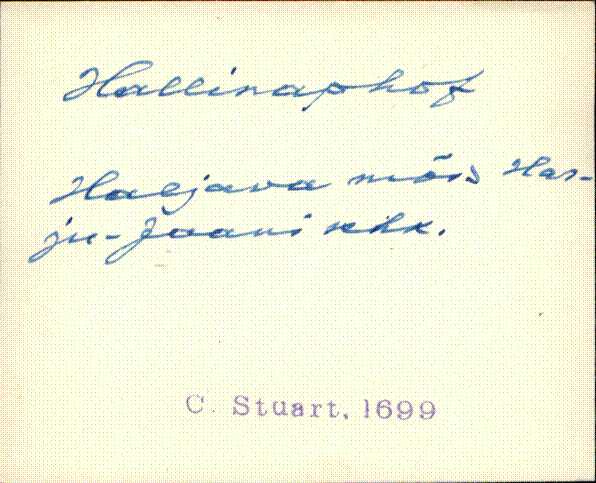 Hallinaphof
Haljava mõis Har-
ju-Jaani khk.
C. Stuart, 1699